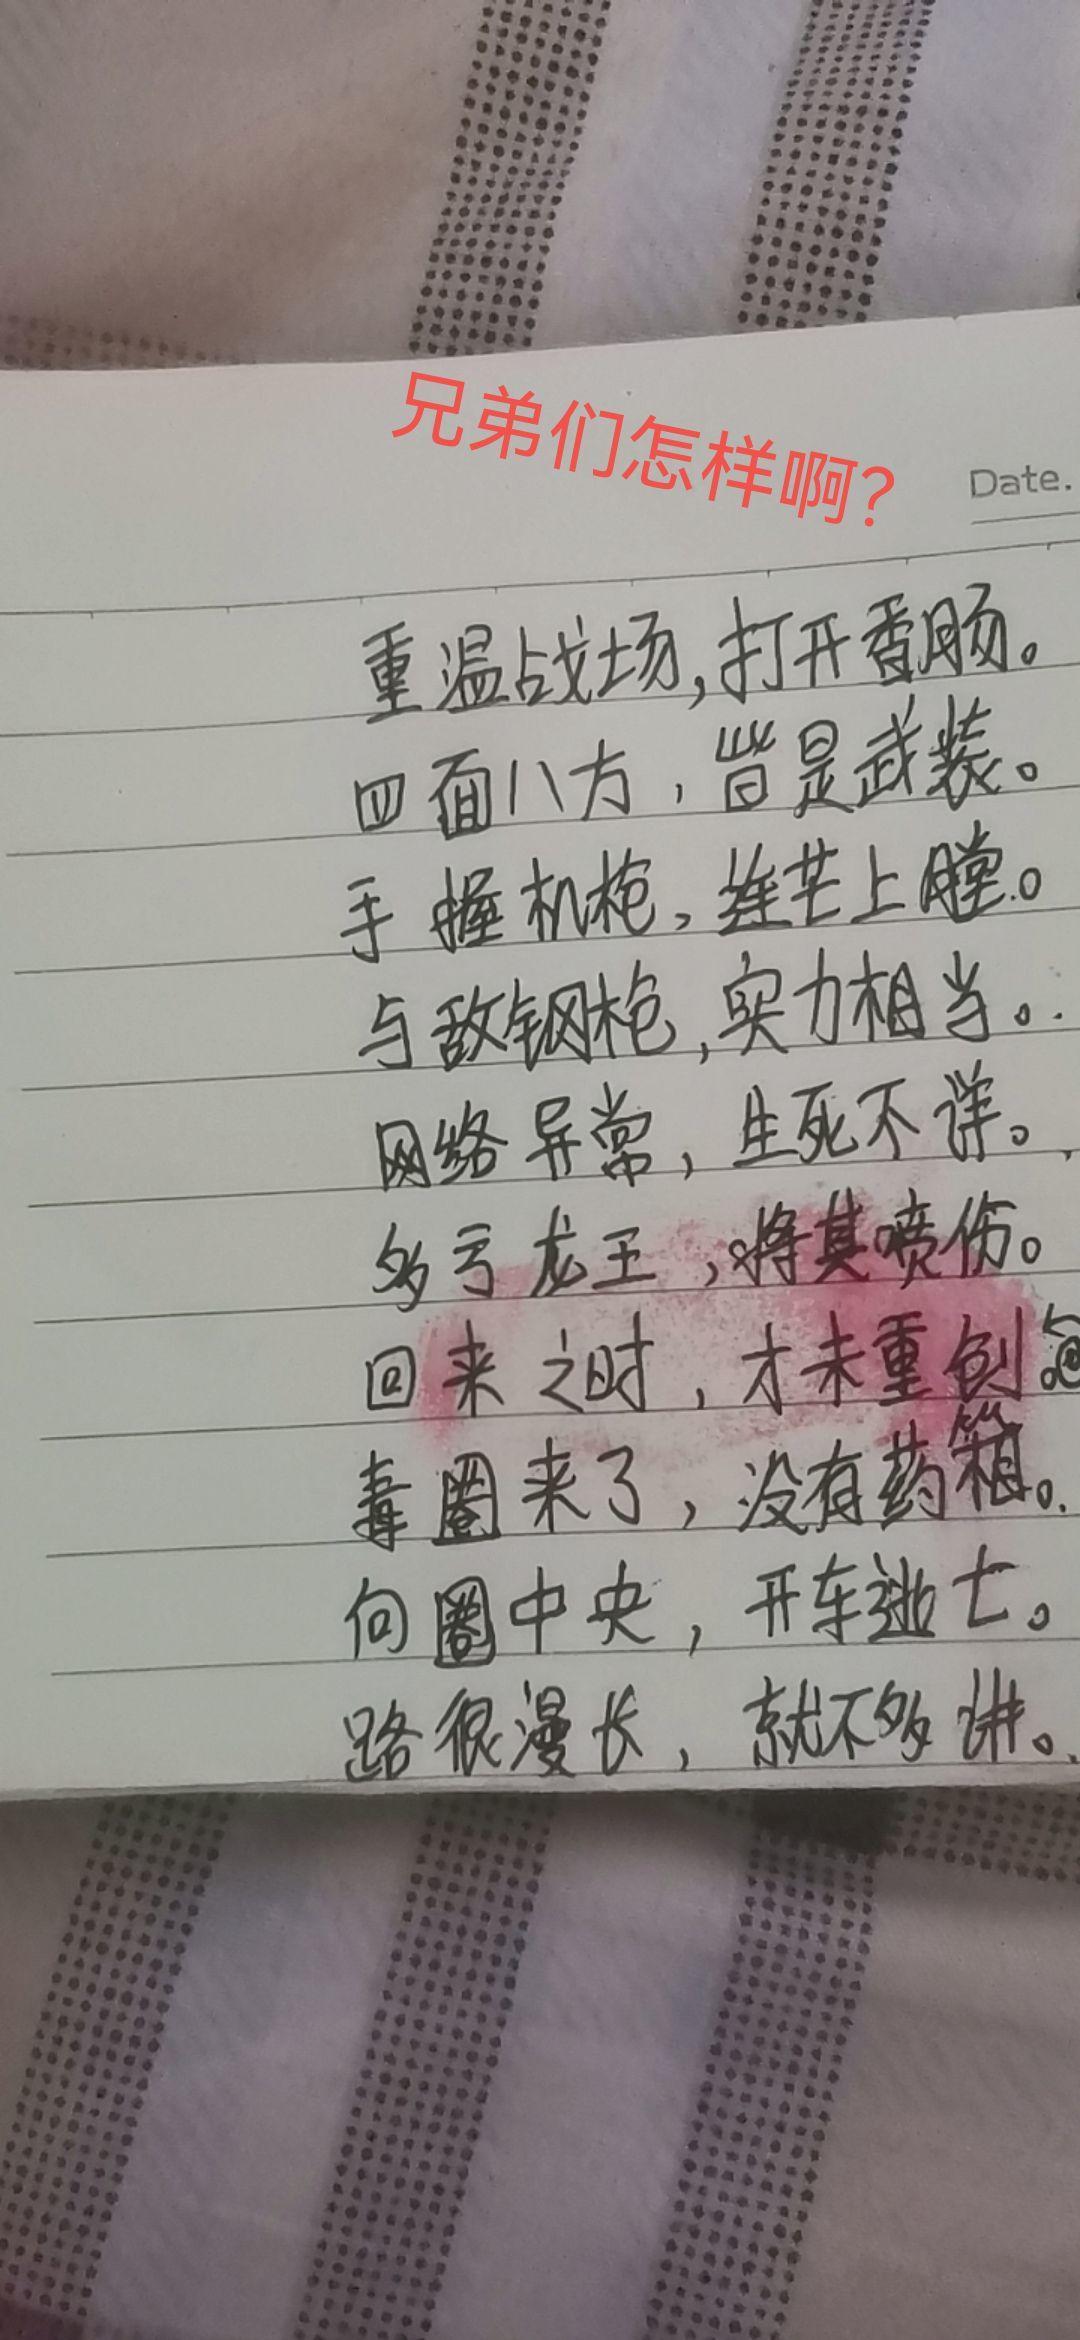 兄弟们怎样啊?
Date.
重温战场,打开香肠。
四面八方,皆是武装。
手握机枪,连芒上膛。
与敌钢枪,实力相当。
网络异常,生死不详。
多亏龙王,将其喷伤。
回来之时,才未重创。
毒圈来了,没有药箱。
向圈中央,开车逃亡。
路很漫长,就不多讲。